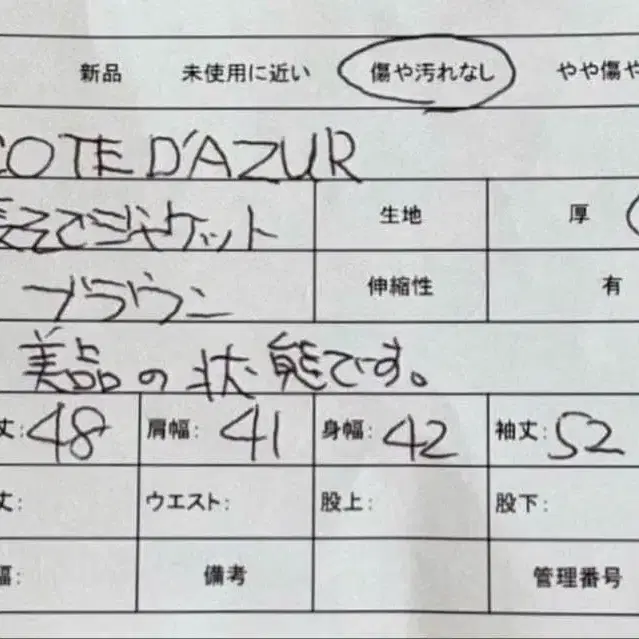 新品 未使用に近い 傷や汚れなし やや傷や
COTE D'AZUR
長そでジャケット 生地 厚
ブラウン 伸縮性 有
美品の状態です。
丈:48 肩幅:41 身幅:42 袖丈:52
丈: ウエスト: 股上: 股下:
幅: 備考 管理番号